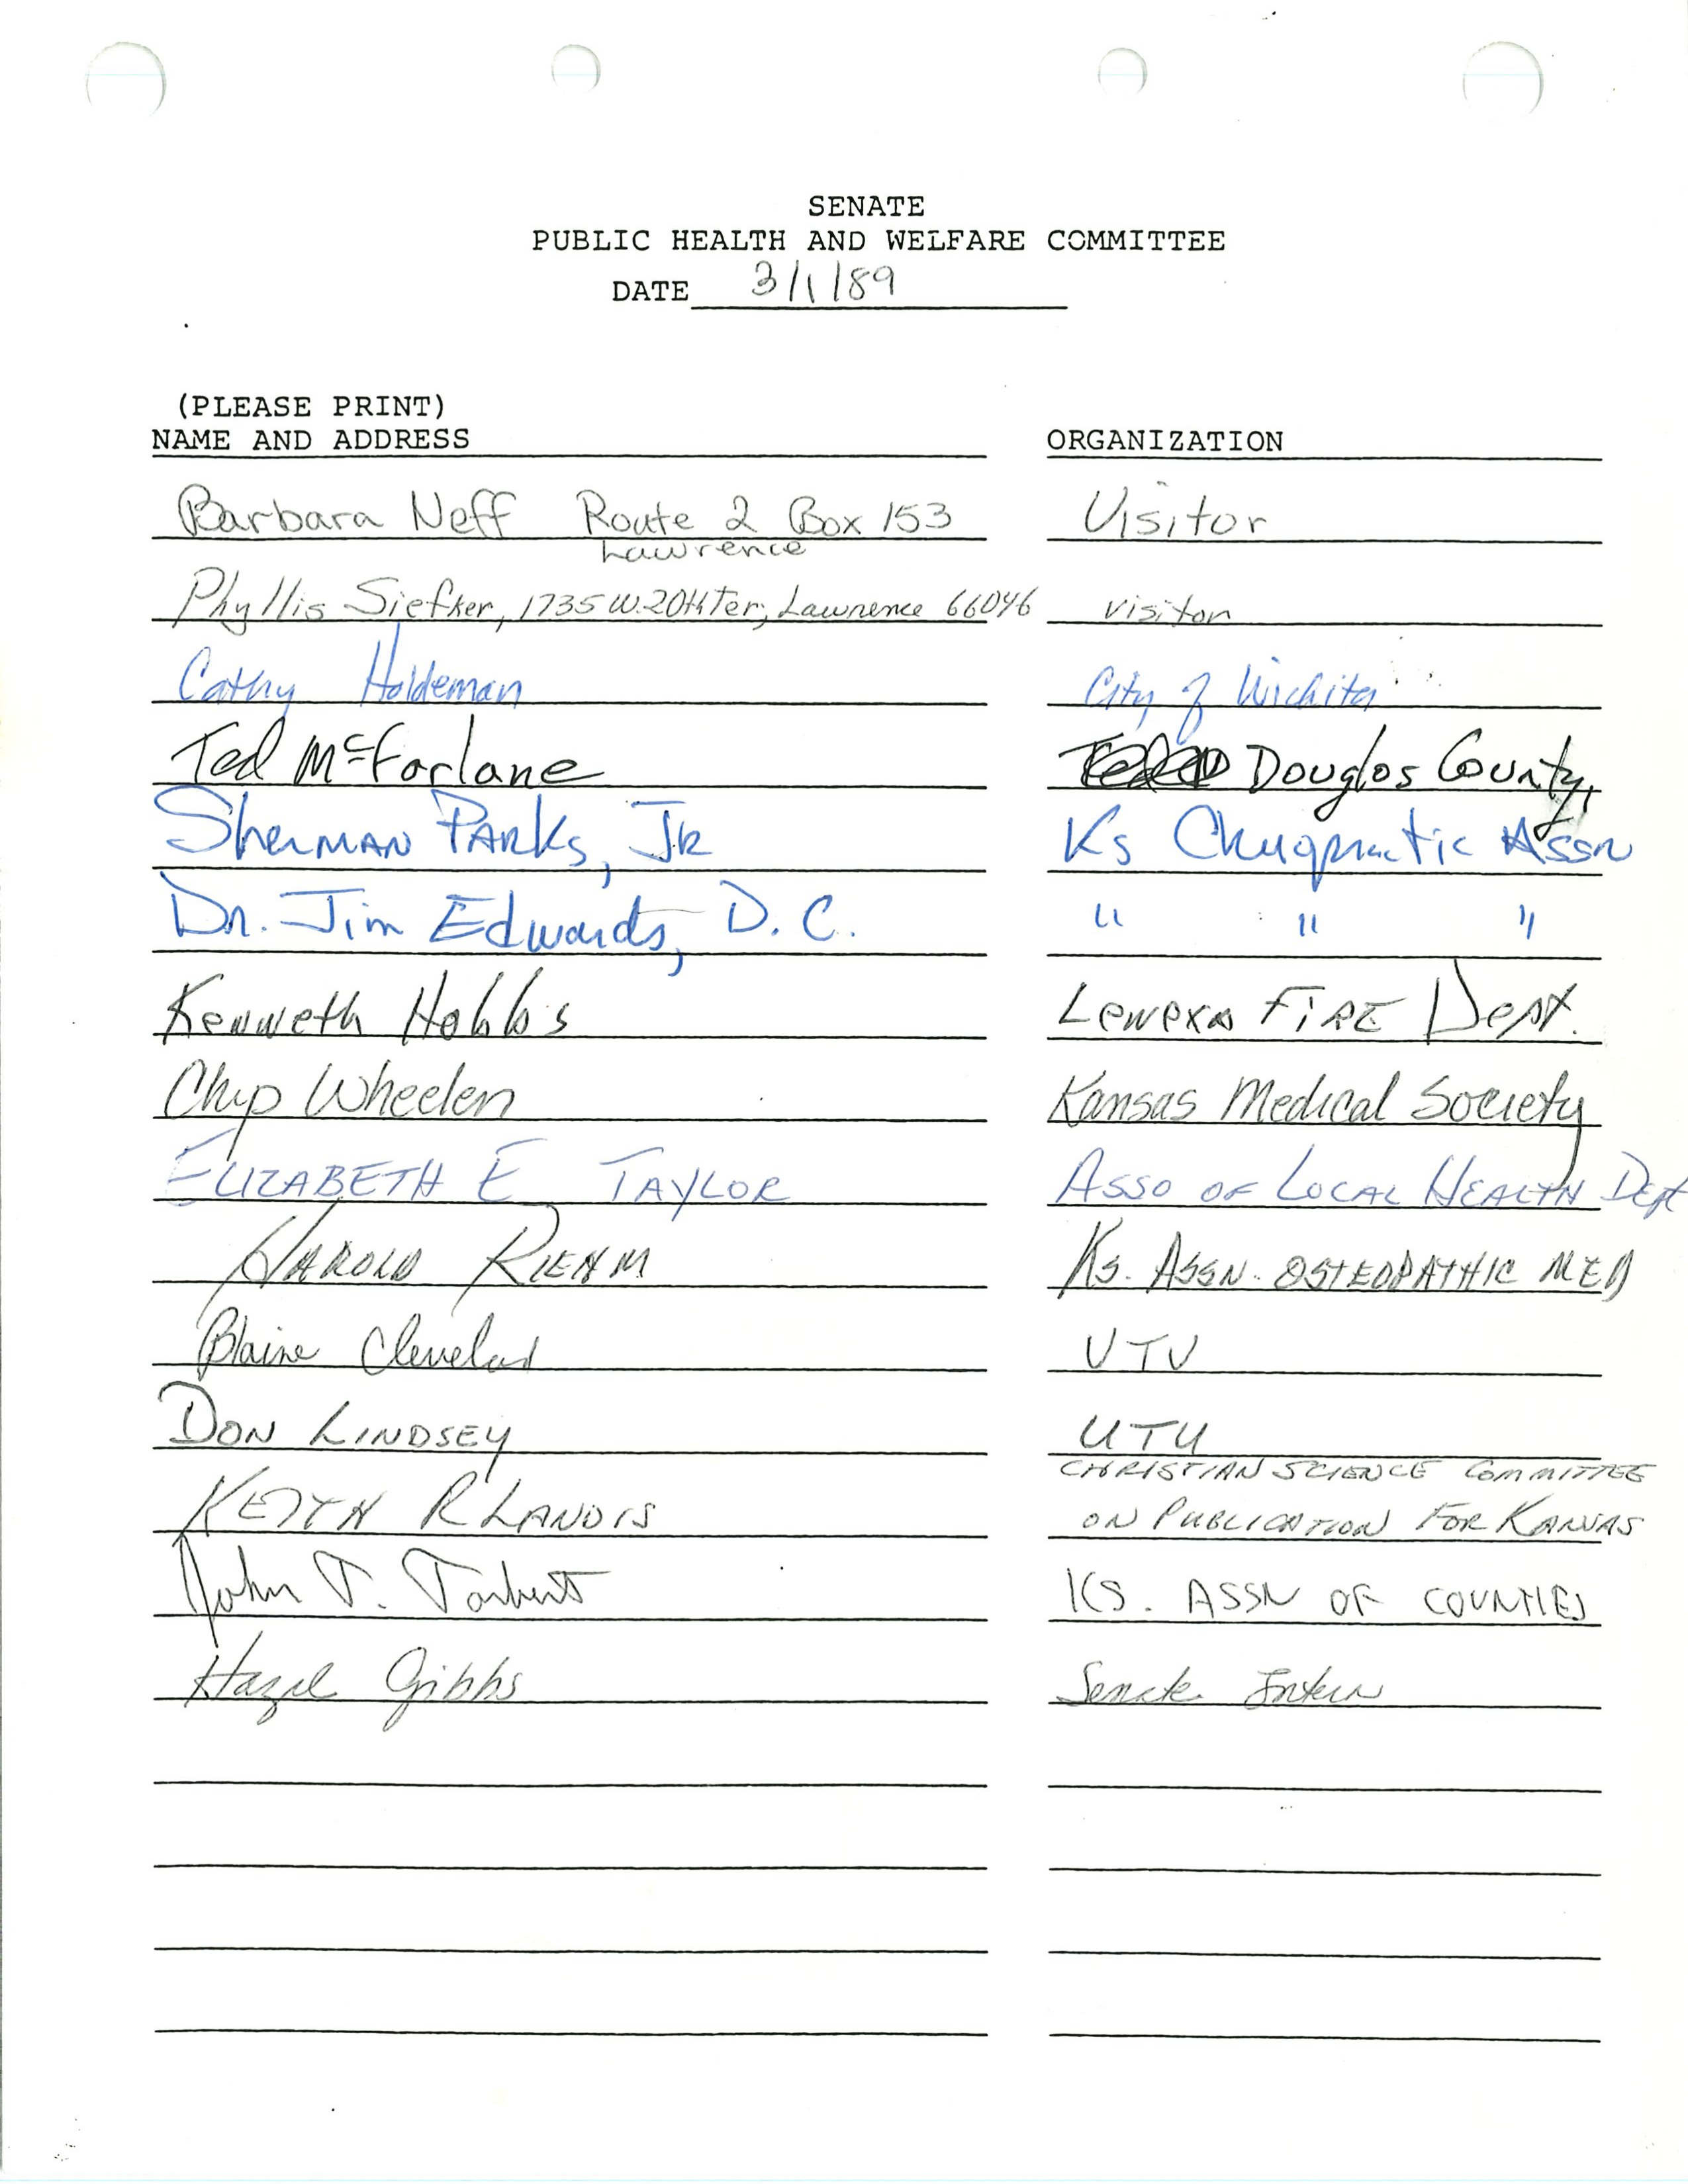 SENATE
PUBLIC HEALTH AND WELFARE COMMITTEE
DATE 3/1/89
(PLEASE PRINT)
NAME AND ADDRESS ORGANIZATION
Barbara Neff Route 2 Box 153 Visitor
Lawrence
Phyllis Siefker, 1735 W. 20th Ter, Lawrence 66046 visitor
Cathy Holdeman City of Wichita
Ted McFarlane Douglas County,
Sherman Parks, Jr Ks Chiropractic Assn
Dr. Jim Edwards, D.C. " " "
Kenneth Hobbs Lenexa Fire Dept.
Chip Wheelen Kansas Medical Society
ELIZABETH E TAYLOR ASSO OF LOCAL HEALTH Dept
HAROLD RIEHM Ks. ASSN. OSTEOPATHIC MED
Blaine Cleveland UTU
DON LINDSEY UTU
CHRISTIAN SCIENCE COMMITTEE
KEITH R LANDIS ON PUBLICATION FOR KANSAS
John T. Torbert KS. ASSN OF COUNTIES
Hazel Gibbs Senate Intern